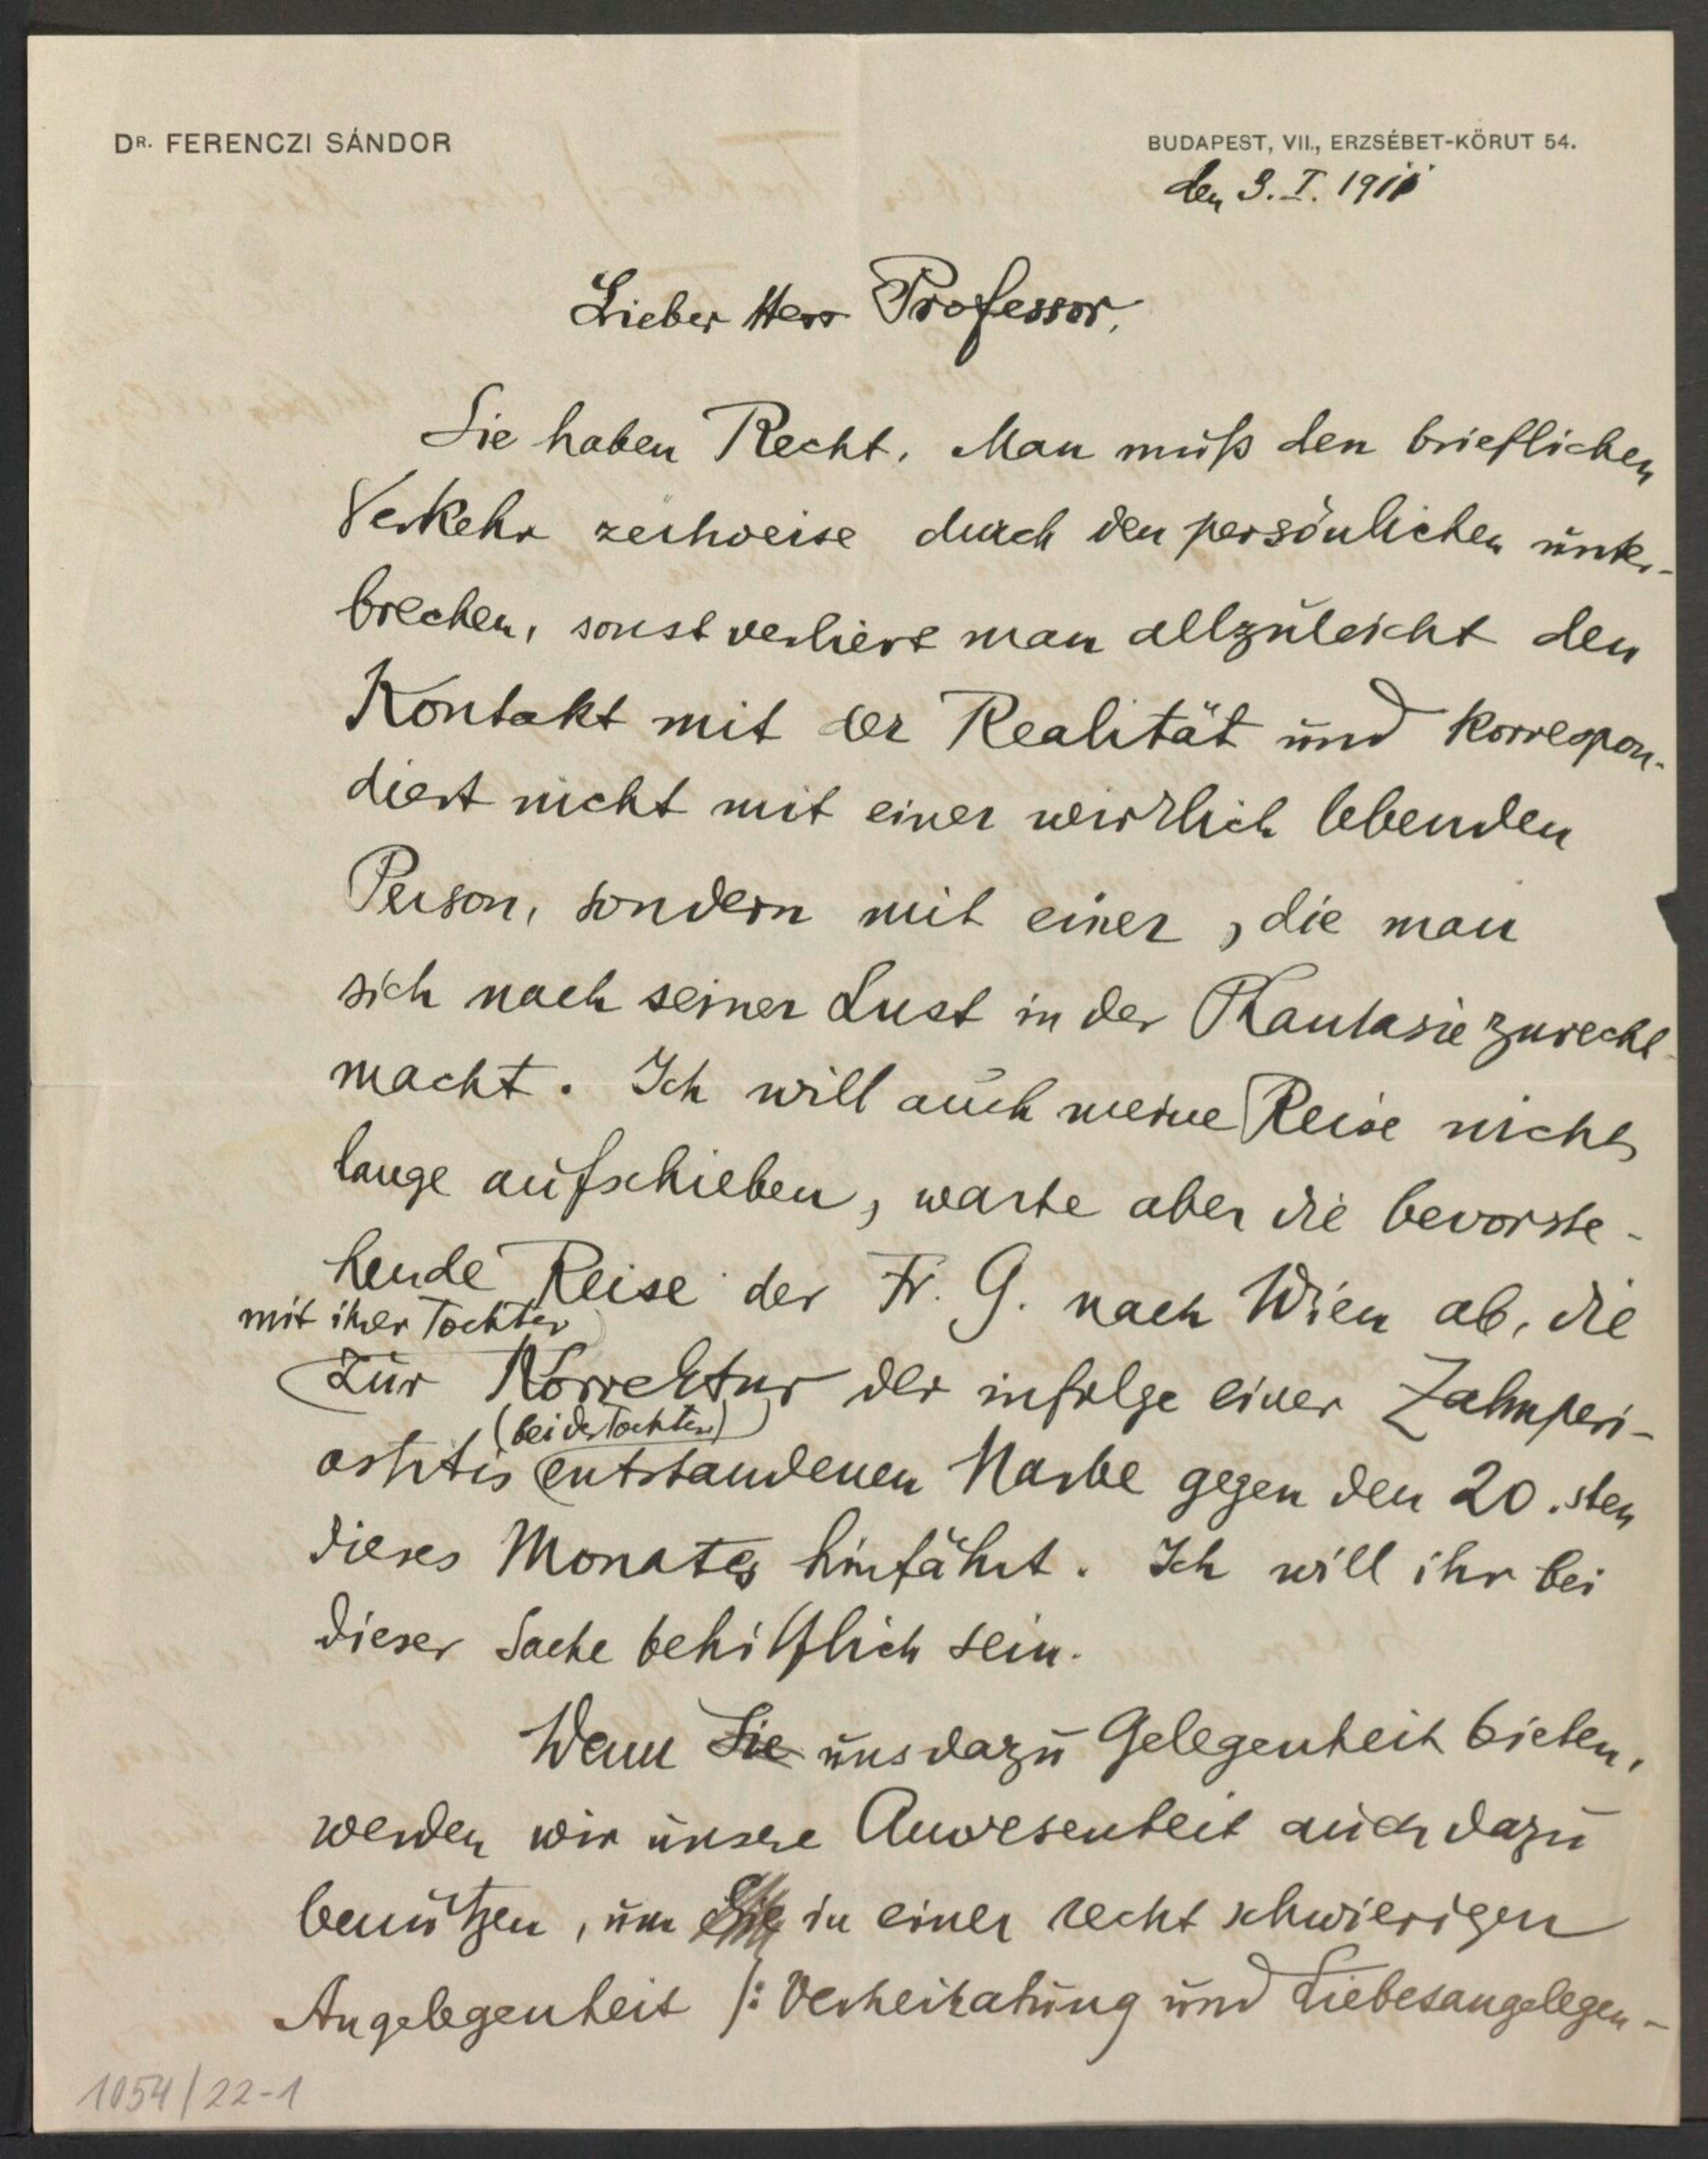 DR. FERENCZI SÁNDOR
BUDAPEST, VII., ERZSÉBET-KÖRUT 54.
den 3. I. 1911
Lieber Herr Professor,
Sie haben Recht. Man muß den brieflichen
Verkehr zeitweise durch den persönlichen unter-
brechen, sonst verliert man allzuleicht den
Kontakt mit der Realität und korrespon-
diert nicht mit einer wirklich lebenden
Person, sondern mit einer, die man
sich nach seiner Lust in der Phantasie zurecht-
macht. Ich will auch meine Reise nicht
lange aufschieben, warte aber die bevorste-
hende Reise der Fr. G. nach Wien ab, die
mit ihrer Tochter
zur Korrektur der infolge einer Zahnperi-
(bei der Tochter)
ostitis entstandenen Narbe gegen den 20.sten
dieses Monates hinfährt. Ich will ihr bei
dieser Sache behilflich sein.
Wenn Sie uns dazu Gelegenheit bieten,
werden wir unsere Anwesenheit auch dazu
benützen, um Sie in einer recht schwierigen
Angelegenheit /: Verheiratung und Liebesangelegen-
1054/22-1